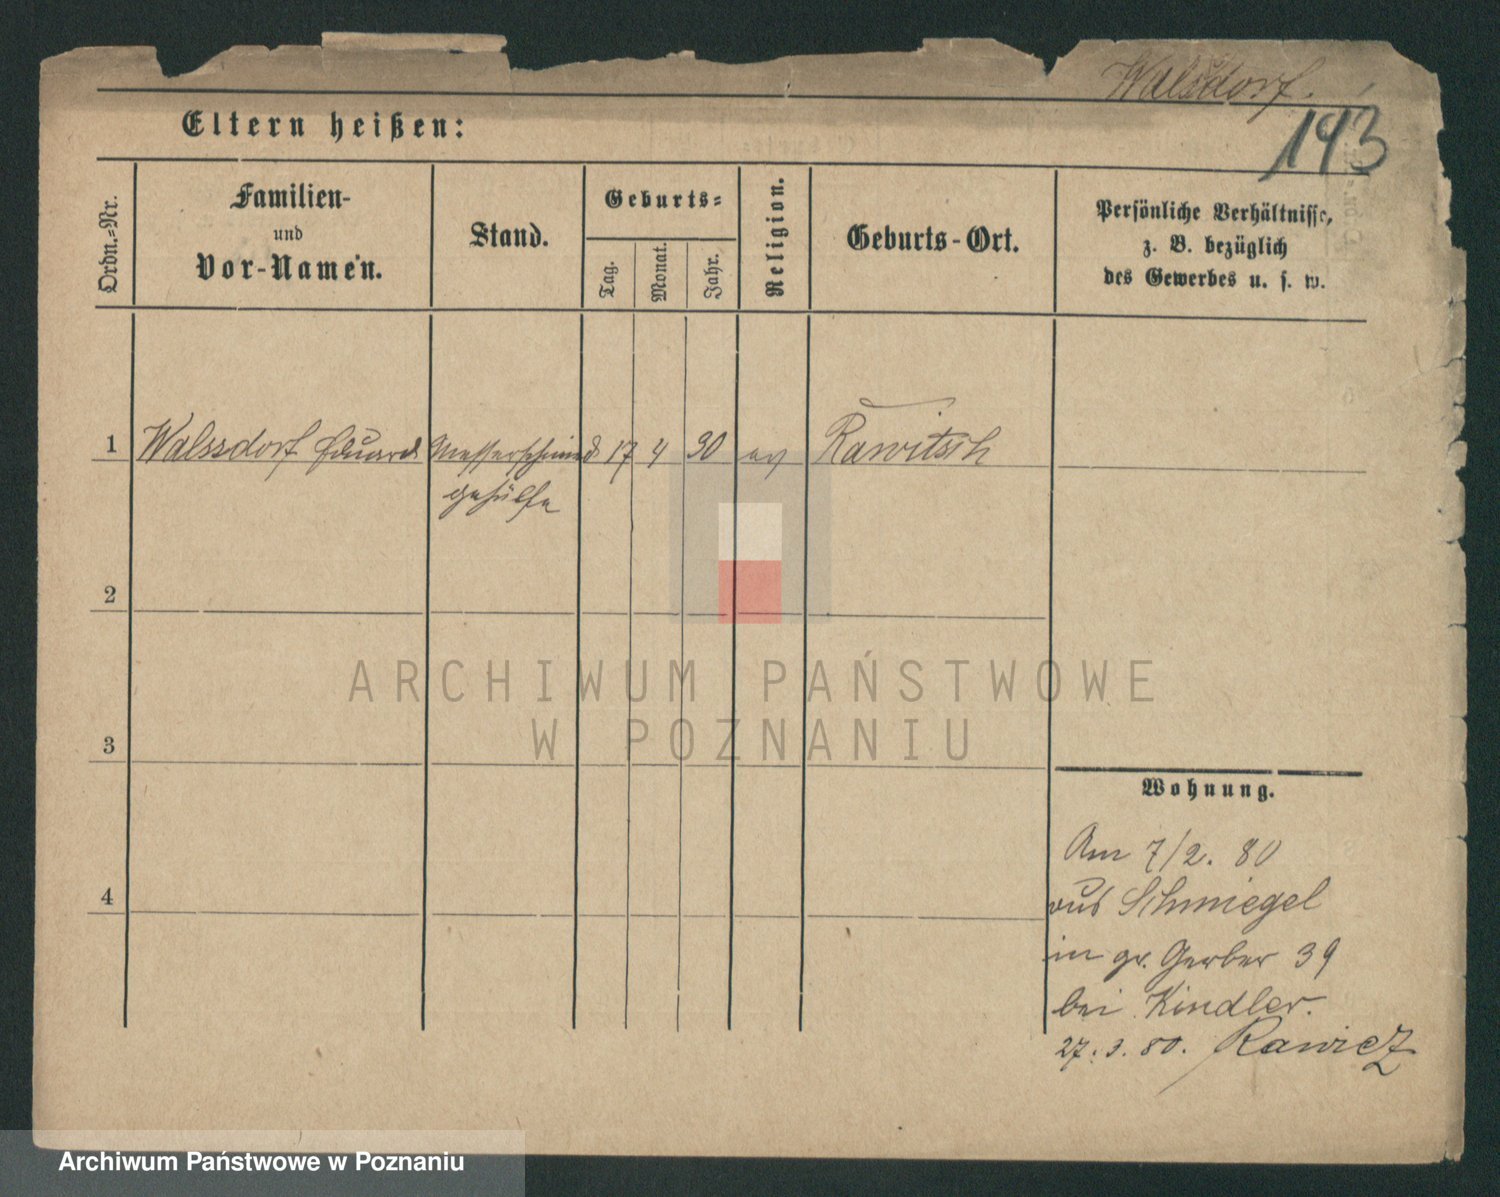 Walsdorf.
143
Eltern heißen:
Ordn.-Nr.
Familien-
und
Vor-Namen.
Stand.
Geburts-
Tag.
Monat.
Jahr.
Religion.
Geburts-Ort.
Persönliche Verhältnisse,
z. B. bezüglich
des Gewerbes u. s. w.
1 Walssdorf Eduard Messerschmied 17 4 30 ev Rawitsch
gehülfe
2
3
4
Wohnung.
Am 7/2. 80
aus Schmiegel
in gr. Gerber 39
bei Kindler.
27. 3. 80. Rawicz
ARCHIWUM PAŃSTWOWE
W POZNANIU
Archiwum Państwowe w Poznaniu